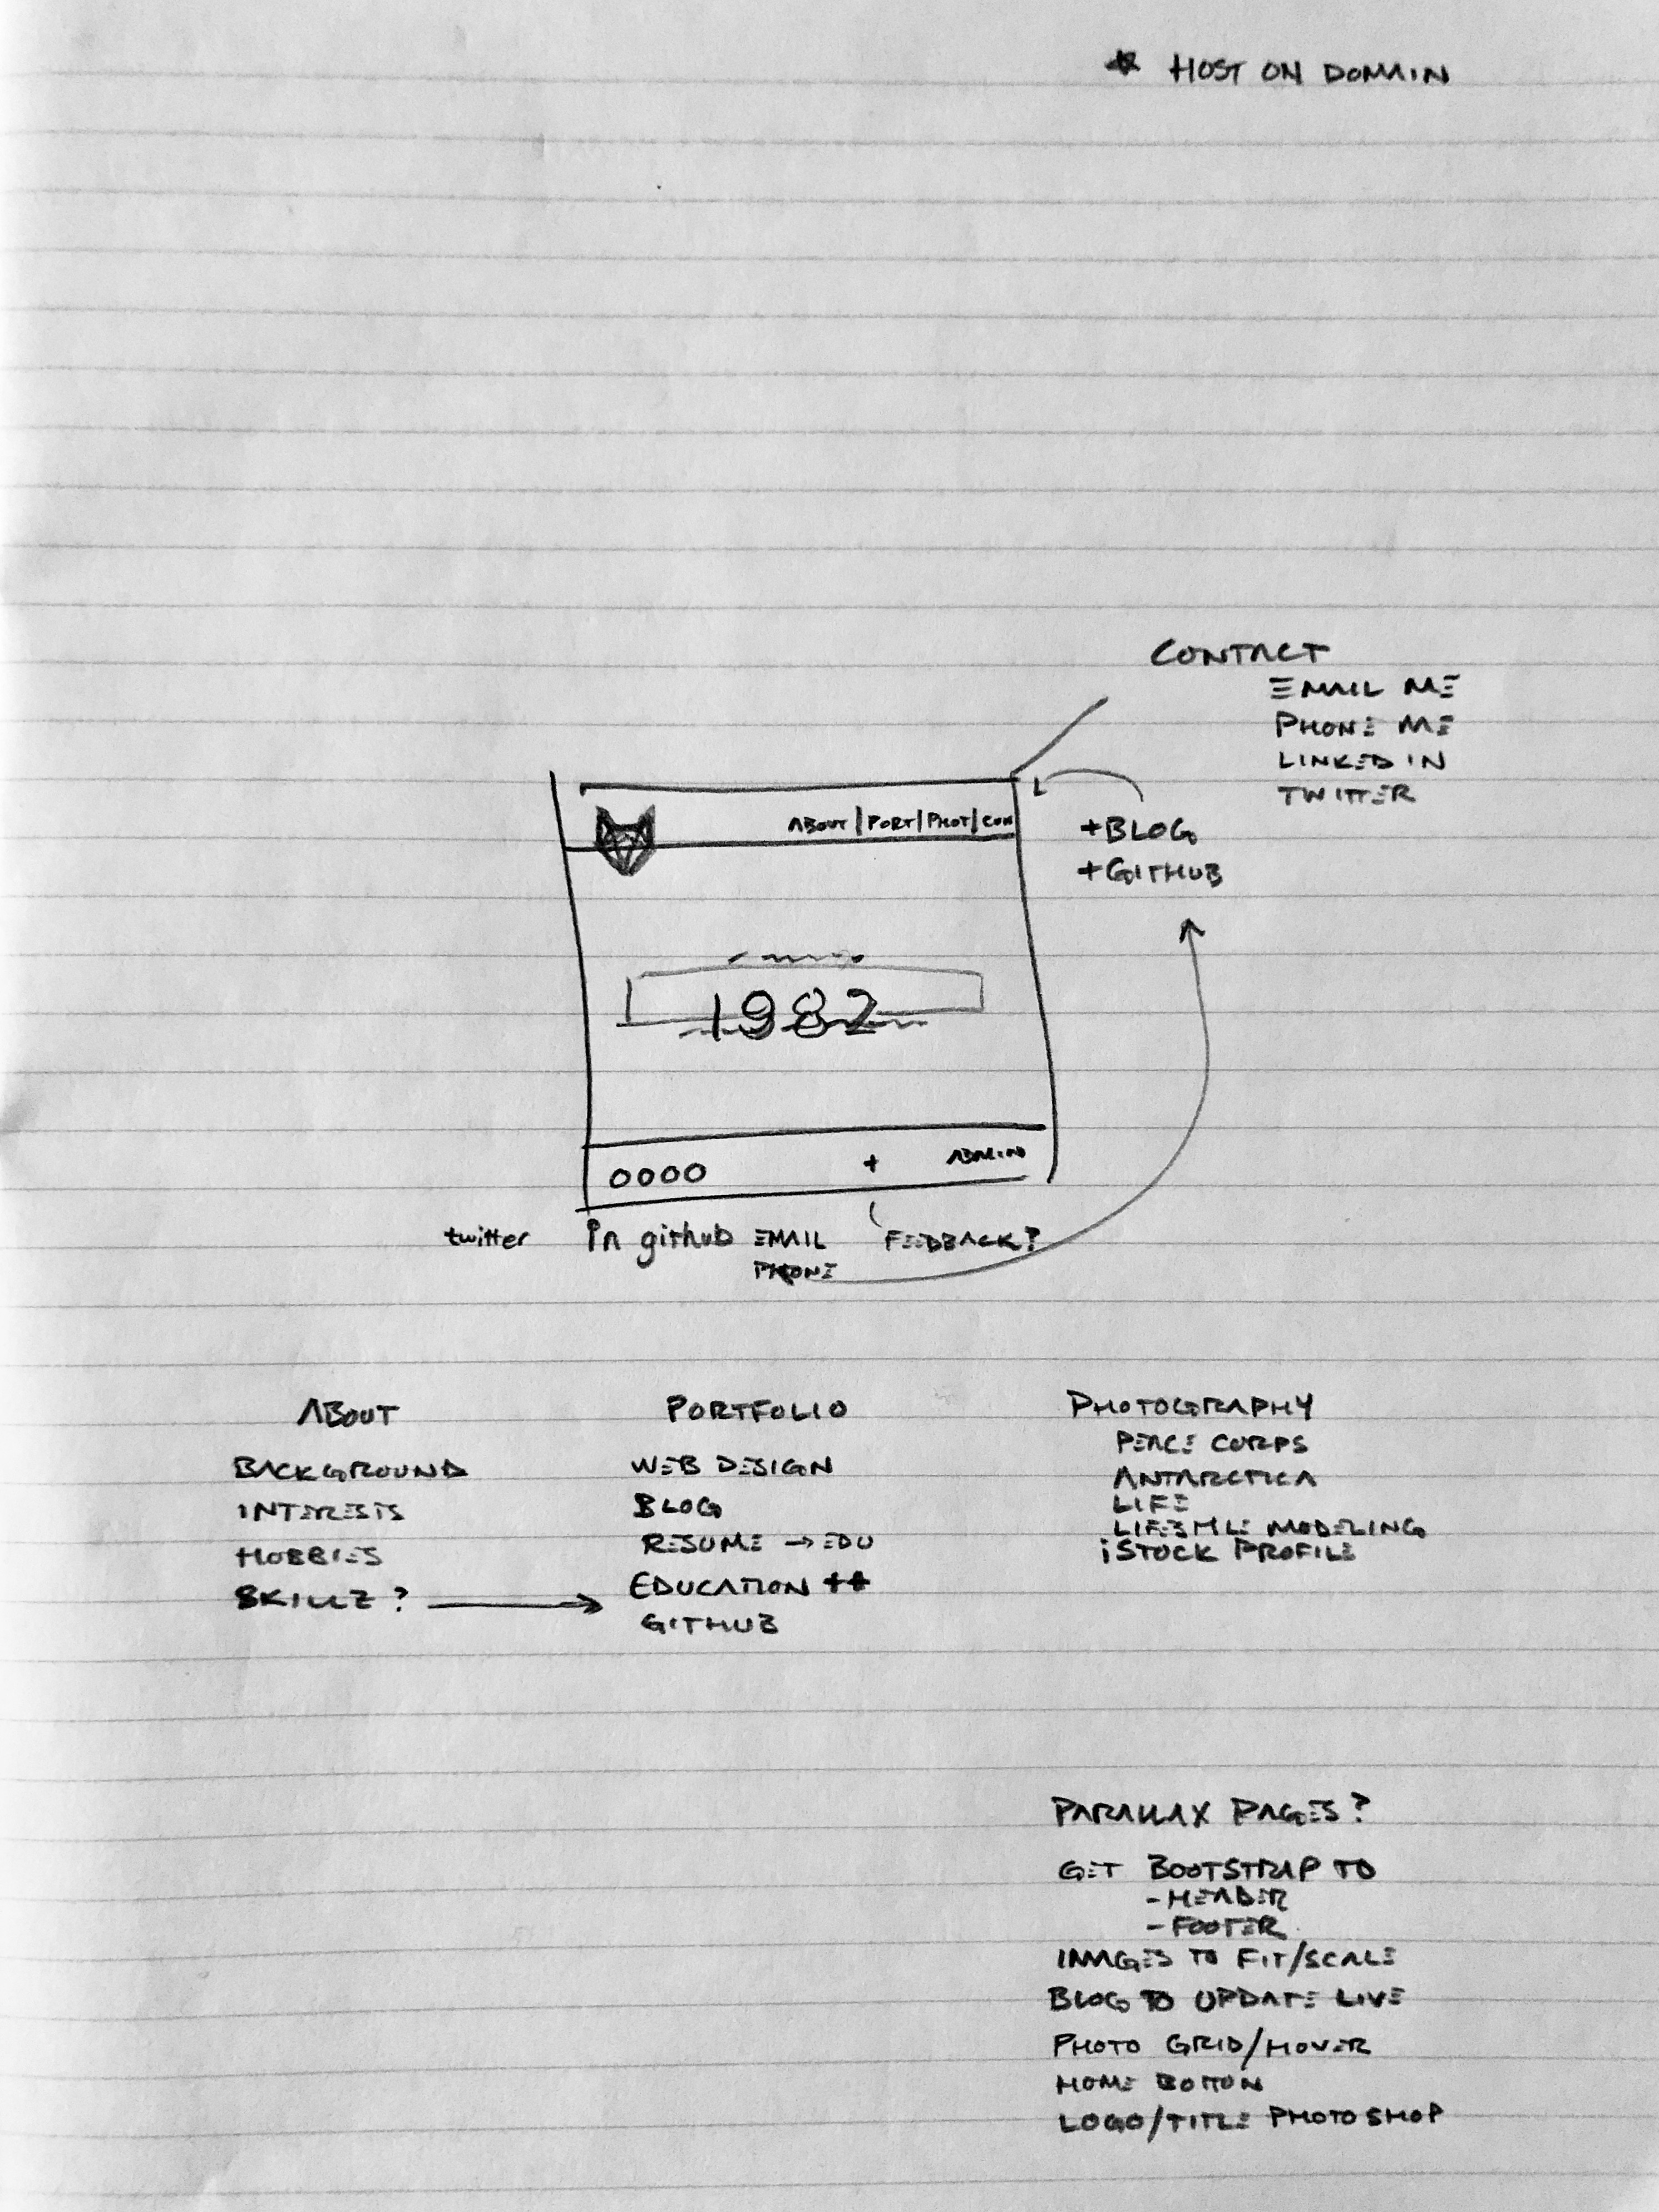 ★ HOST ON DOMAIN
CONTACT
EMAIL ME
PHONE ME
LINKED IN
TWITTER
+BLOG
+GITHUB
ABOUT | PORT | PHOT | CON
1982
OOOO + ADMIN
twitter in github EMAIL FEEDBACK?
PHONE
ABOUT
BACKGROUND
INTERESTS
HOBBIES
SKILLZ? →
PORTFOLIO
WEB DESIGN
BLOG
RESUME → EDU
EDUCATION ++
GITHUB
PHOTOGRAPHY
PEACE CORPS
ANTARCTICA
LIFE
LIFESTYLE MODELING
iSTOCK PROFILE
PARALLAX PAGES?
GET BOOTSTRAP TO
- HEADER
- FOOTER
IMAGES TO FIT/SCALE
BLOG TO UPDATE LIVE
PHOTO GRID/HOVER
HOME BOTTON
LOGO/TITLE PHOTOSHOP